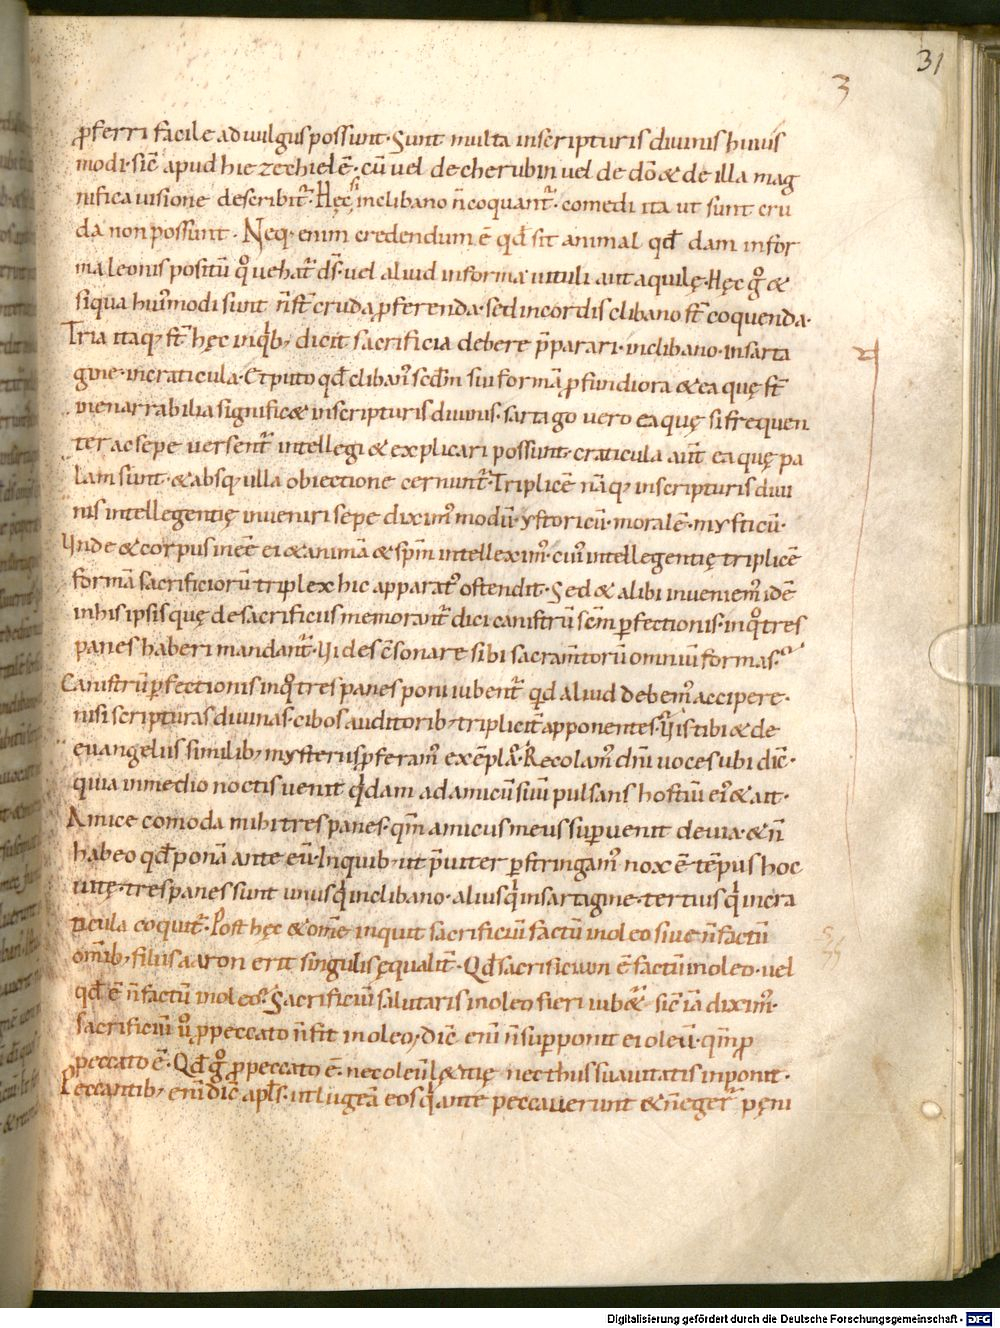 31
3
ꝓferri facile ad uulgus possunt· Sunt multa in scripturis diuinis huius
modi· sic̄ apud hiezechielē· cū uel de cherubin uel de dō & de illa mag
nifica uisione describit᷑· Hęc si in clibano n̄ coquant᷑· comedi ita ut sunt cru
da non possunt· Neq· enim credendum ē qđ sit animal qđ dam in for
ma leonis positū qͦ uehat᷑ ds̄· uel aliud in forma uituli aut aquilę· Hęc gͦ &
siqua hui᷒modi sunt n̄ st̄ cruda ꝓferenda· sed in cordis clibano st̄ coquenda·
Tria itaq; st̄ hęc in qͥb; dicit sacrificia debere p̄parari· in clibano· in sarta
gine· in craticula· Et puto qđ cliban᷒ scdm̄ sui formā ꝓfundiora & ea quę st̄
inenarrabilia signific& in scripturis diuinis· sartago uero ea quę si frequen
ter ac sepe uersent᷑ intellegi & explicari possunt· craticula aūt ea quę pa
lam sunt· & absq; ulla obiectione cernunt᷑· Triplicē nāq; in scripturis diui
nis intellegentię inueniri sepe dixim᷒ modū· ystoricū· moralē· mysticū·
Vnde & corpus inēē ei & animā & sp̄m intelleximus᷒· cui᷒ intellegentię triplicē
formā sacrificiorū triplex hic apparat᷒ ostendit· Sed & alibi inueniem᷒ idē
in his ipsis quę de sacrificiis memorant᷑ dici canistrū sc̄m ꝑfectionis· in qͦ tres
panes haberi mandant᷑· Vides c̄sonare sibi sacram̄torū omniū formas·
Canistrū ꝑfectionis in qͦ tres panes poni iubent᷑ qđ aliud debem᷒ accipere·
nisi scripturas diuinas· cibos auditorib; triplicit̄ apponentes· Vis tibi & de
euangeliis similib; mysteriis ꝓferam᷒ exēpla· Recolam᷒ dn̄i uoces ubi dic̄·
quia in medio noctis uenit qͥdam ad amicū suū pulsans hostiū ei᷒ & ait·
Amice comoda mihi tres panes· qm̄ amicus meus suꝑuenit de uia· & n̄
habeo qđ ponā ante eū· In quib; ut p̄uiter ꝑstringam᷒ nox ē tēpus hoc
uitę· tres panes sunt unus qͥ in clibano· alius qͥ in sartagine· tertius qͥ in cra
ticula coquit᷑· Post hęc & om̄e inquit sacrificiū factū in oleo siue n̄ factū
om̄ib; filiis aaron erit singulis ęqualit̄· Qđ sacrificium ē factū in oleo· uel
qđ ē n̄ factū in oleo· Sacrificiū salutaris in oleo fieri iub&᷑ sic̄ iā dixim᷒·
sacrificiū uͦ ꝓ peccato n̄ fit in oleo, dic̄ eni n̄ suꝑponit ei oleū· qm̄ ꝓ
peccato ē· Qđ gͦ ꝓ peccato ē· nec oleū lętitię nec thus suauitatis inponit·
Peccantib; eni dic̄ apl̄s· ut lugeā eos qͥ ante peccauerunt & n̄ eger᷑ pęni
Digitalisierung gefördert durch die Deutsche Forschungsgemeinschaft - DFG